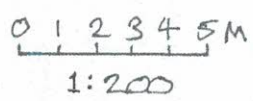 0 1 2 3 4 5M
1:200